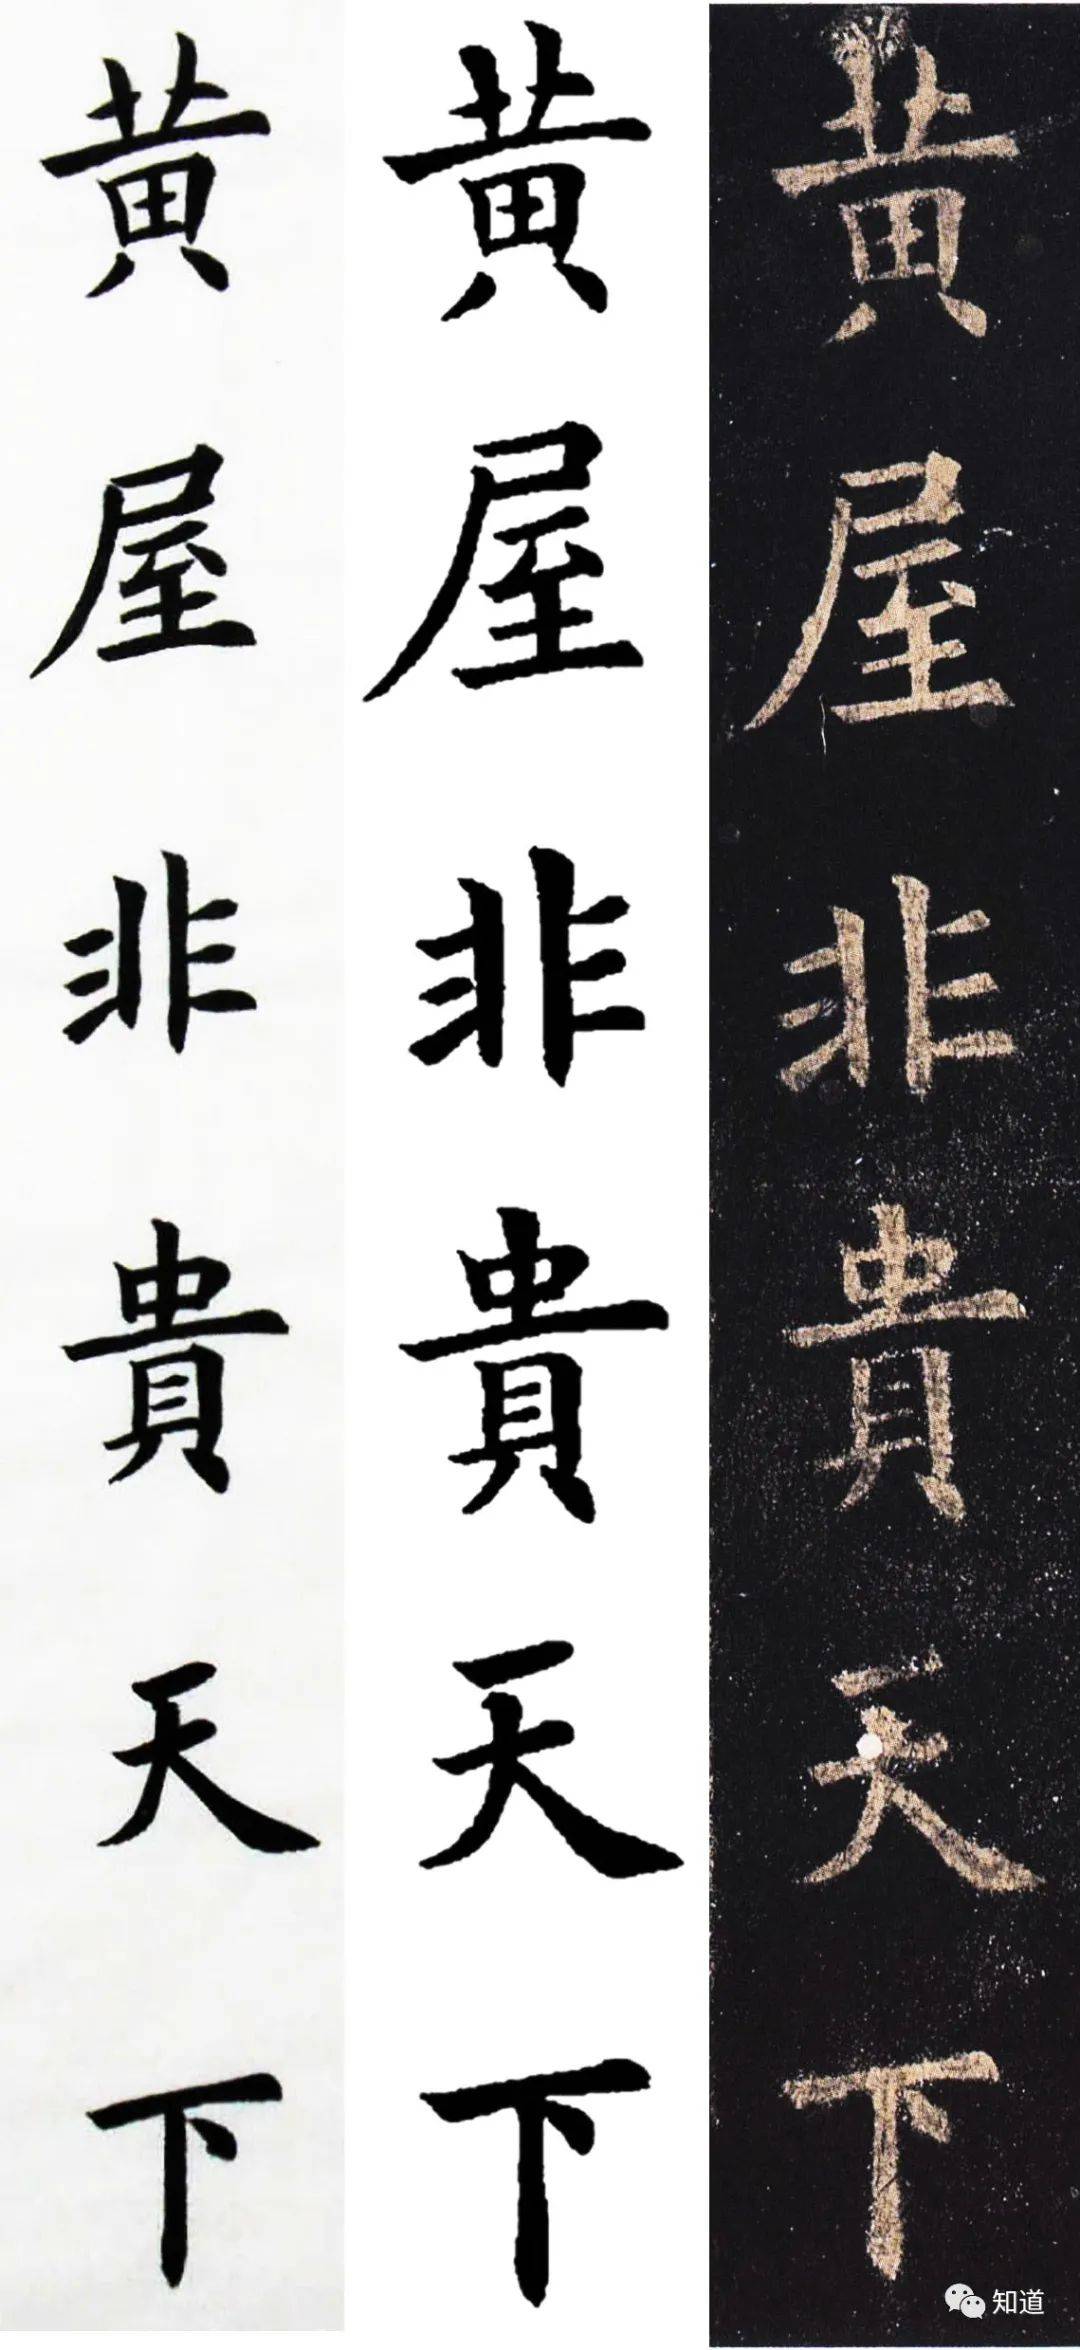 黄屋非貴天下
黄屋非貴天下
黄屋非貴天下
知道